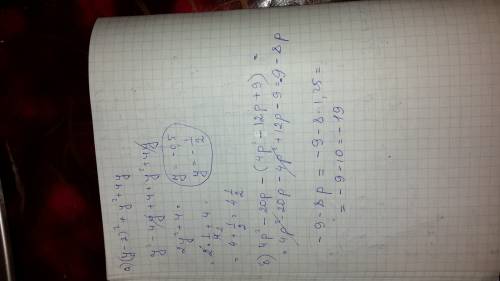 а) (y-2)² + y² + 4y
y² - 4y + 4 + y² + 4y
2y² + 4 =
y = -0,5
y = -1/2
= 2·1/4 + 4 =
= 4 + 1/2 = 4 1/2
б) 4p² - 20p - (4p² - 12p + 9) =
= 4p² - 20p - 4p² + 12p - 9 = -9 - 8p
-9 - 8p = -9 - 8·1,25 =
= -9 - 10 = -19